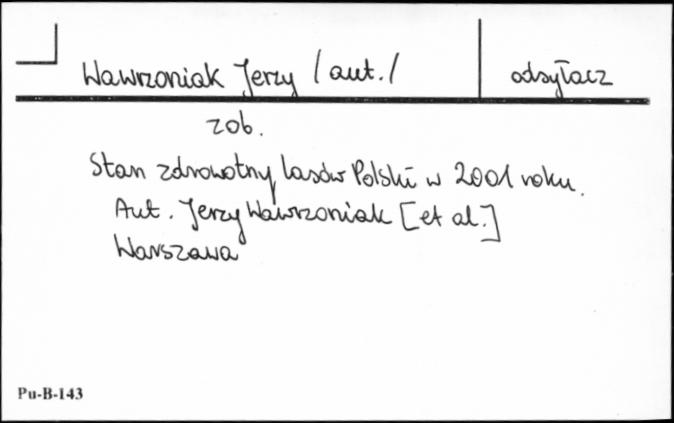 Wawrzoniak Jerzy /aut./
odsyłacz
zob.
Stan zdrowotny lasów Polski w 2001 roku.
Aut. Jerzy Wawrzoniak [et al.]
Warszawa
Pu-B-143